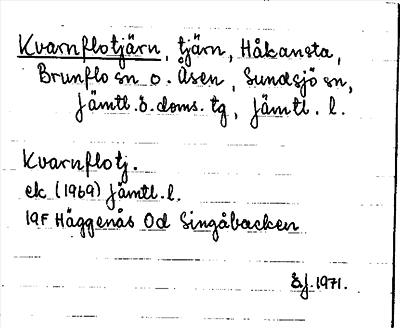 Kvarnflotjärn, tjärn, Håkansta,
Brunflo sn o. Åsen, Sundsjö sn,
Jämtl. ö. doms. tg, Jämtl. l.
Kvarnflotj.
ek (1969) Jämtl. l.
19F Häggenås 0d Singåbacken
EJ. 1971.